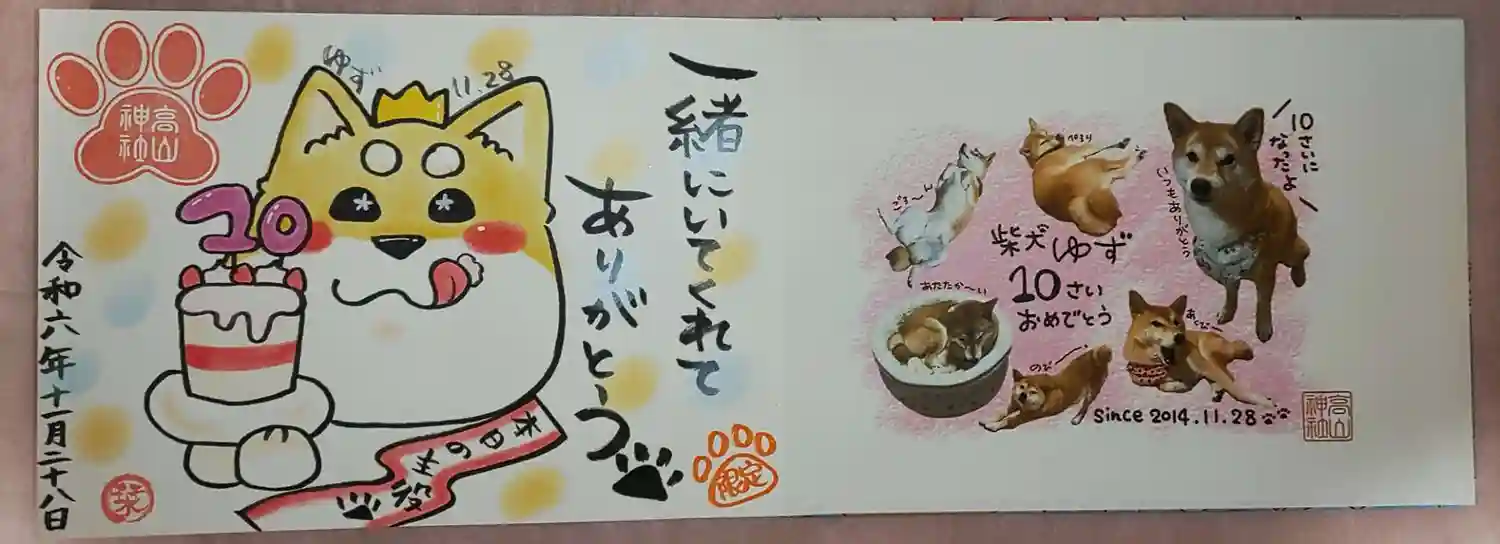 高山
神社
ゆず
11.28
10
一緒にいてくれて
ありがとーう
本日の主役
限定
令和六年十一月二十八日
栞
10さいに
なったよ
いつもありがとう
ぺろり
ごろ〜ん
柴犬ゆず
10さい
おめでとう
あたたか〜い
あくび〜
のび〜
Since 2014.11.28
高山
神社